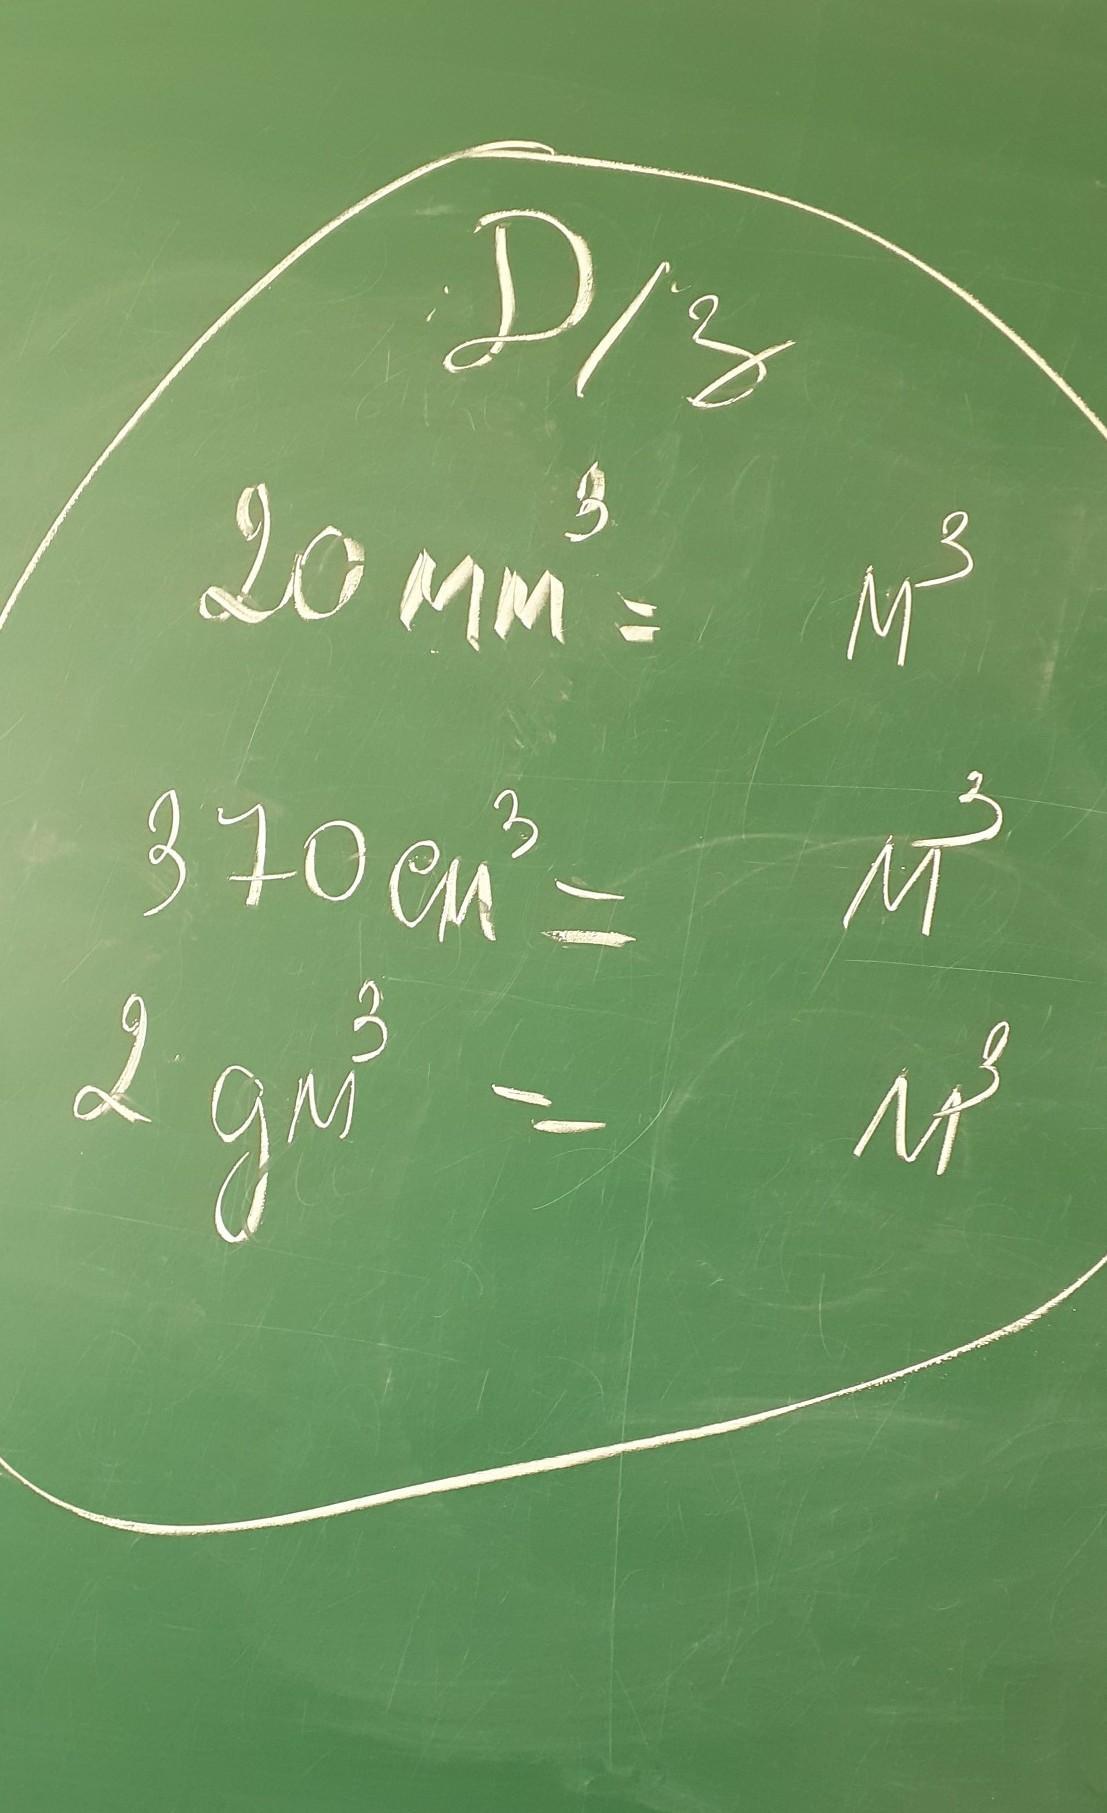 Д/з
20 мм³ = м³
370 см³ = м³
2 дм³ = м³